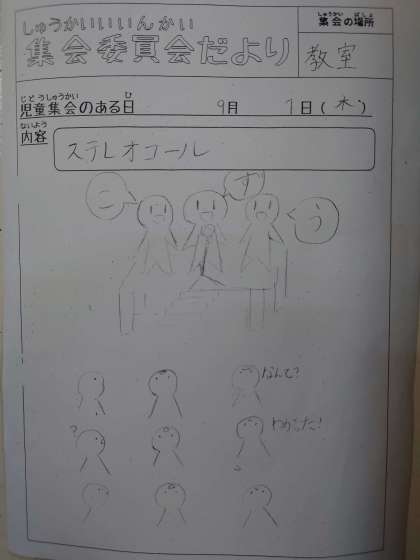 しゅうかいいいんかい
集会委員会だより
しゅうかい ばしょ
集会の場所
教室
じどうしゅうかい ひ
児童集会のある日 9月 7日(木)
ないよう
内容
ステレオコール
こ
ず
う
なんて?
?
わかった!